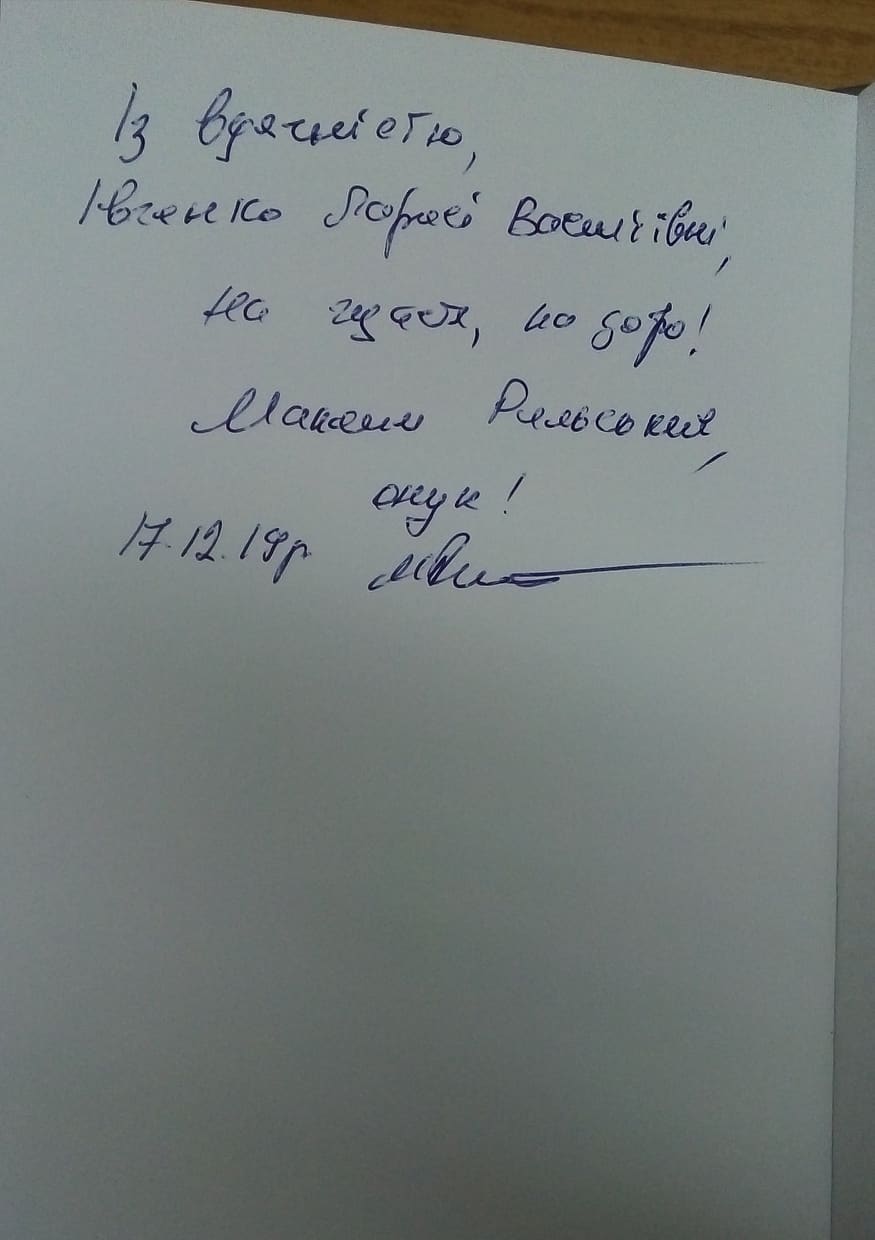 Із вдячністю,
Івченко Ларисі Василівні,
на щастя, на добро!
Максим Рильський,
онук!
17.12.19р